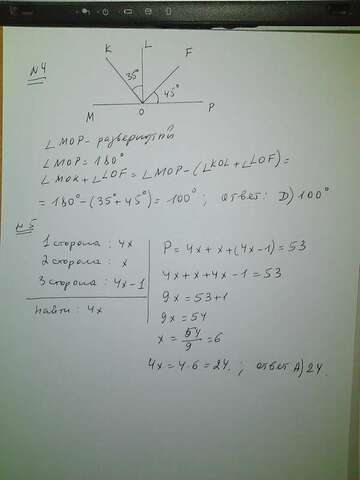 N4
K L F
35° 45°
M O P
∠MOP - развернутый
∠MOP = 180°
∠MOK + ∠LOF = ∠MOP - (∠KOL + ∠LOF) =
= 180° - (35° + 45°) = 100° ; ответ: D) 100°
N5
1 сторона : 4x
2 сторона : x
3 сторона : 4x - 1
найти : 4x
P = 4x + x + (4x - 1) = 53
4x + x + 4x - 1 = 53
9x = 53 + 1
9x = 54
x = 54/9 = 6
4x = 4·6 = 24. ; ответ A) 24.